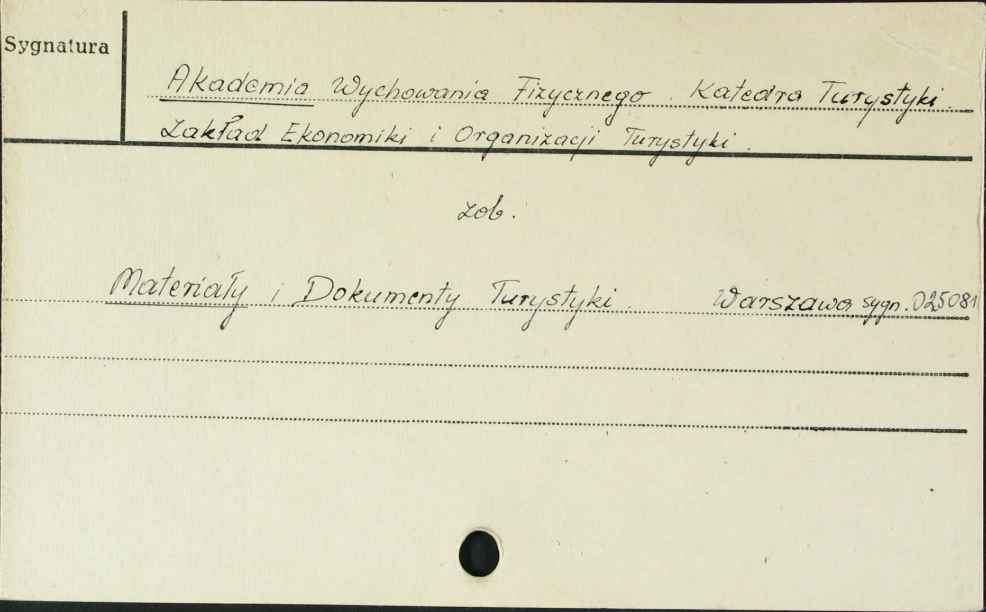 Sygnatura
Akademia Wychowania Fizycznego. Katedra Turystyki.
Zakład Ekonomiki i Organizacji Turystyki.
zob.
Materiały i Dokumenty Turystyki. Warszawa sygn. 025081